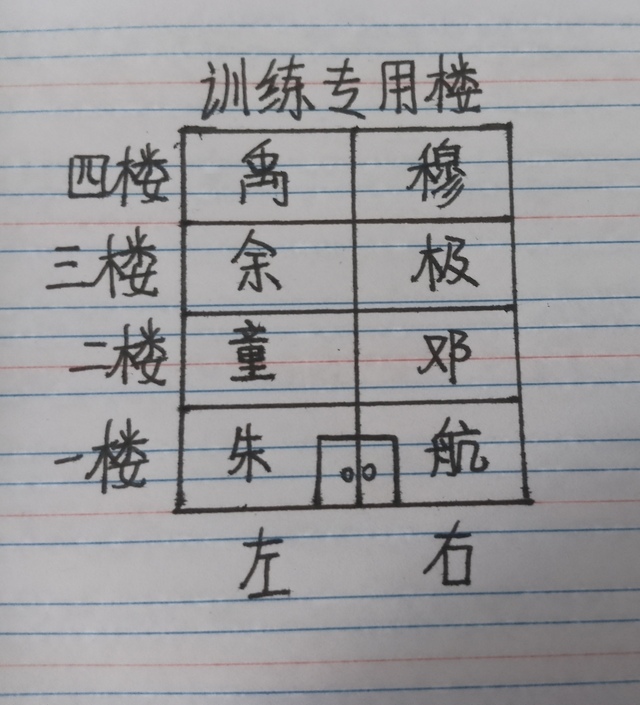 训练专用楼
四楼 禹 穆
三楼 余 极
二楼 童 邓
一楼 朱 航
左 右